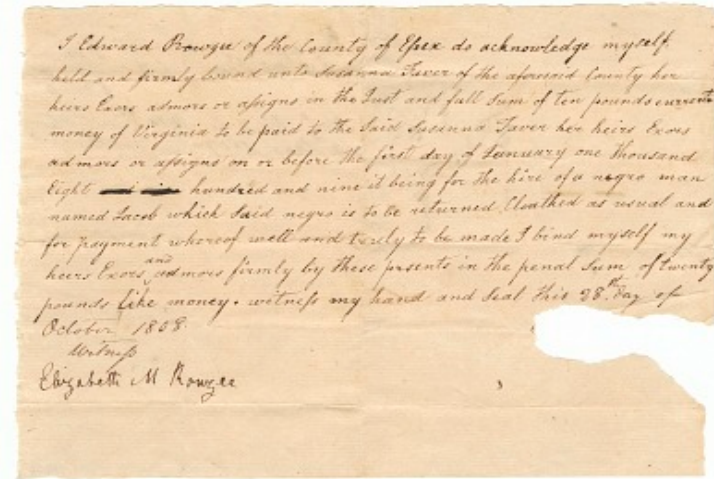 I Edward Rowzee of the County of Essex do acknowledge myself
held and firmly bound unto Susanna Faver of the aforesaid County her
heirs Exors admors or assigns in the Just and full Sum of ten pounds current
money of Virginia to be paid to the Said Susanna Faver her heirs Exors
admors or assigns on or before the first day of January one thousand
Eight hundred and nine it being for the hire of a negro man
named Jacob which Said negro is to be returned Cloathed as usual and
for payment whereof well and truly to be made I bind myself my
heirs Exors and admors firmly by these presents in the penal Sum of twenty
pounds like money. witness my hand and Seal this 28th day of
October 1808
Witness
Elizabeth M Rowzee